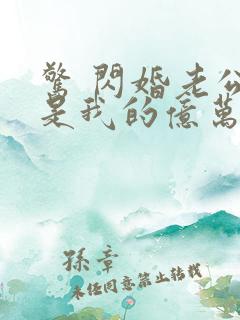 驚 閃婚老公
是我的億萬
孫章
未經同意禁止轉載